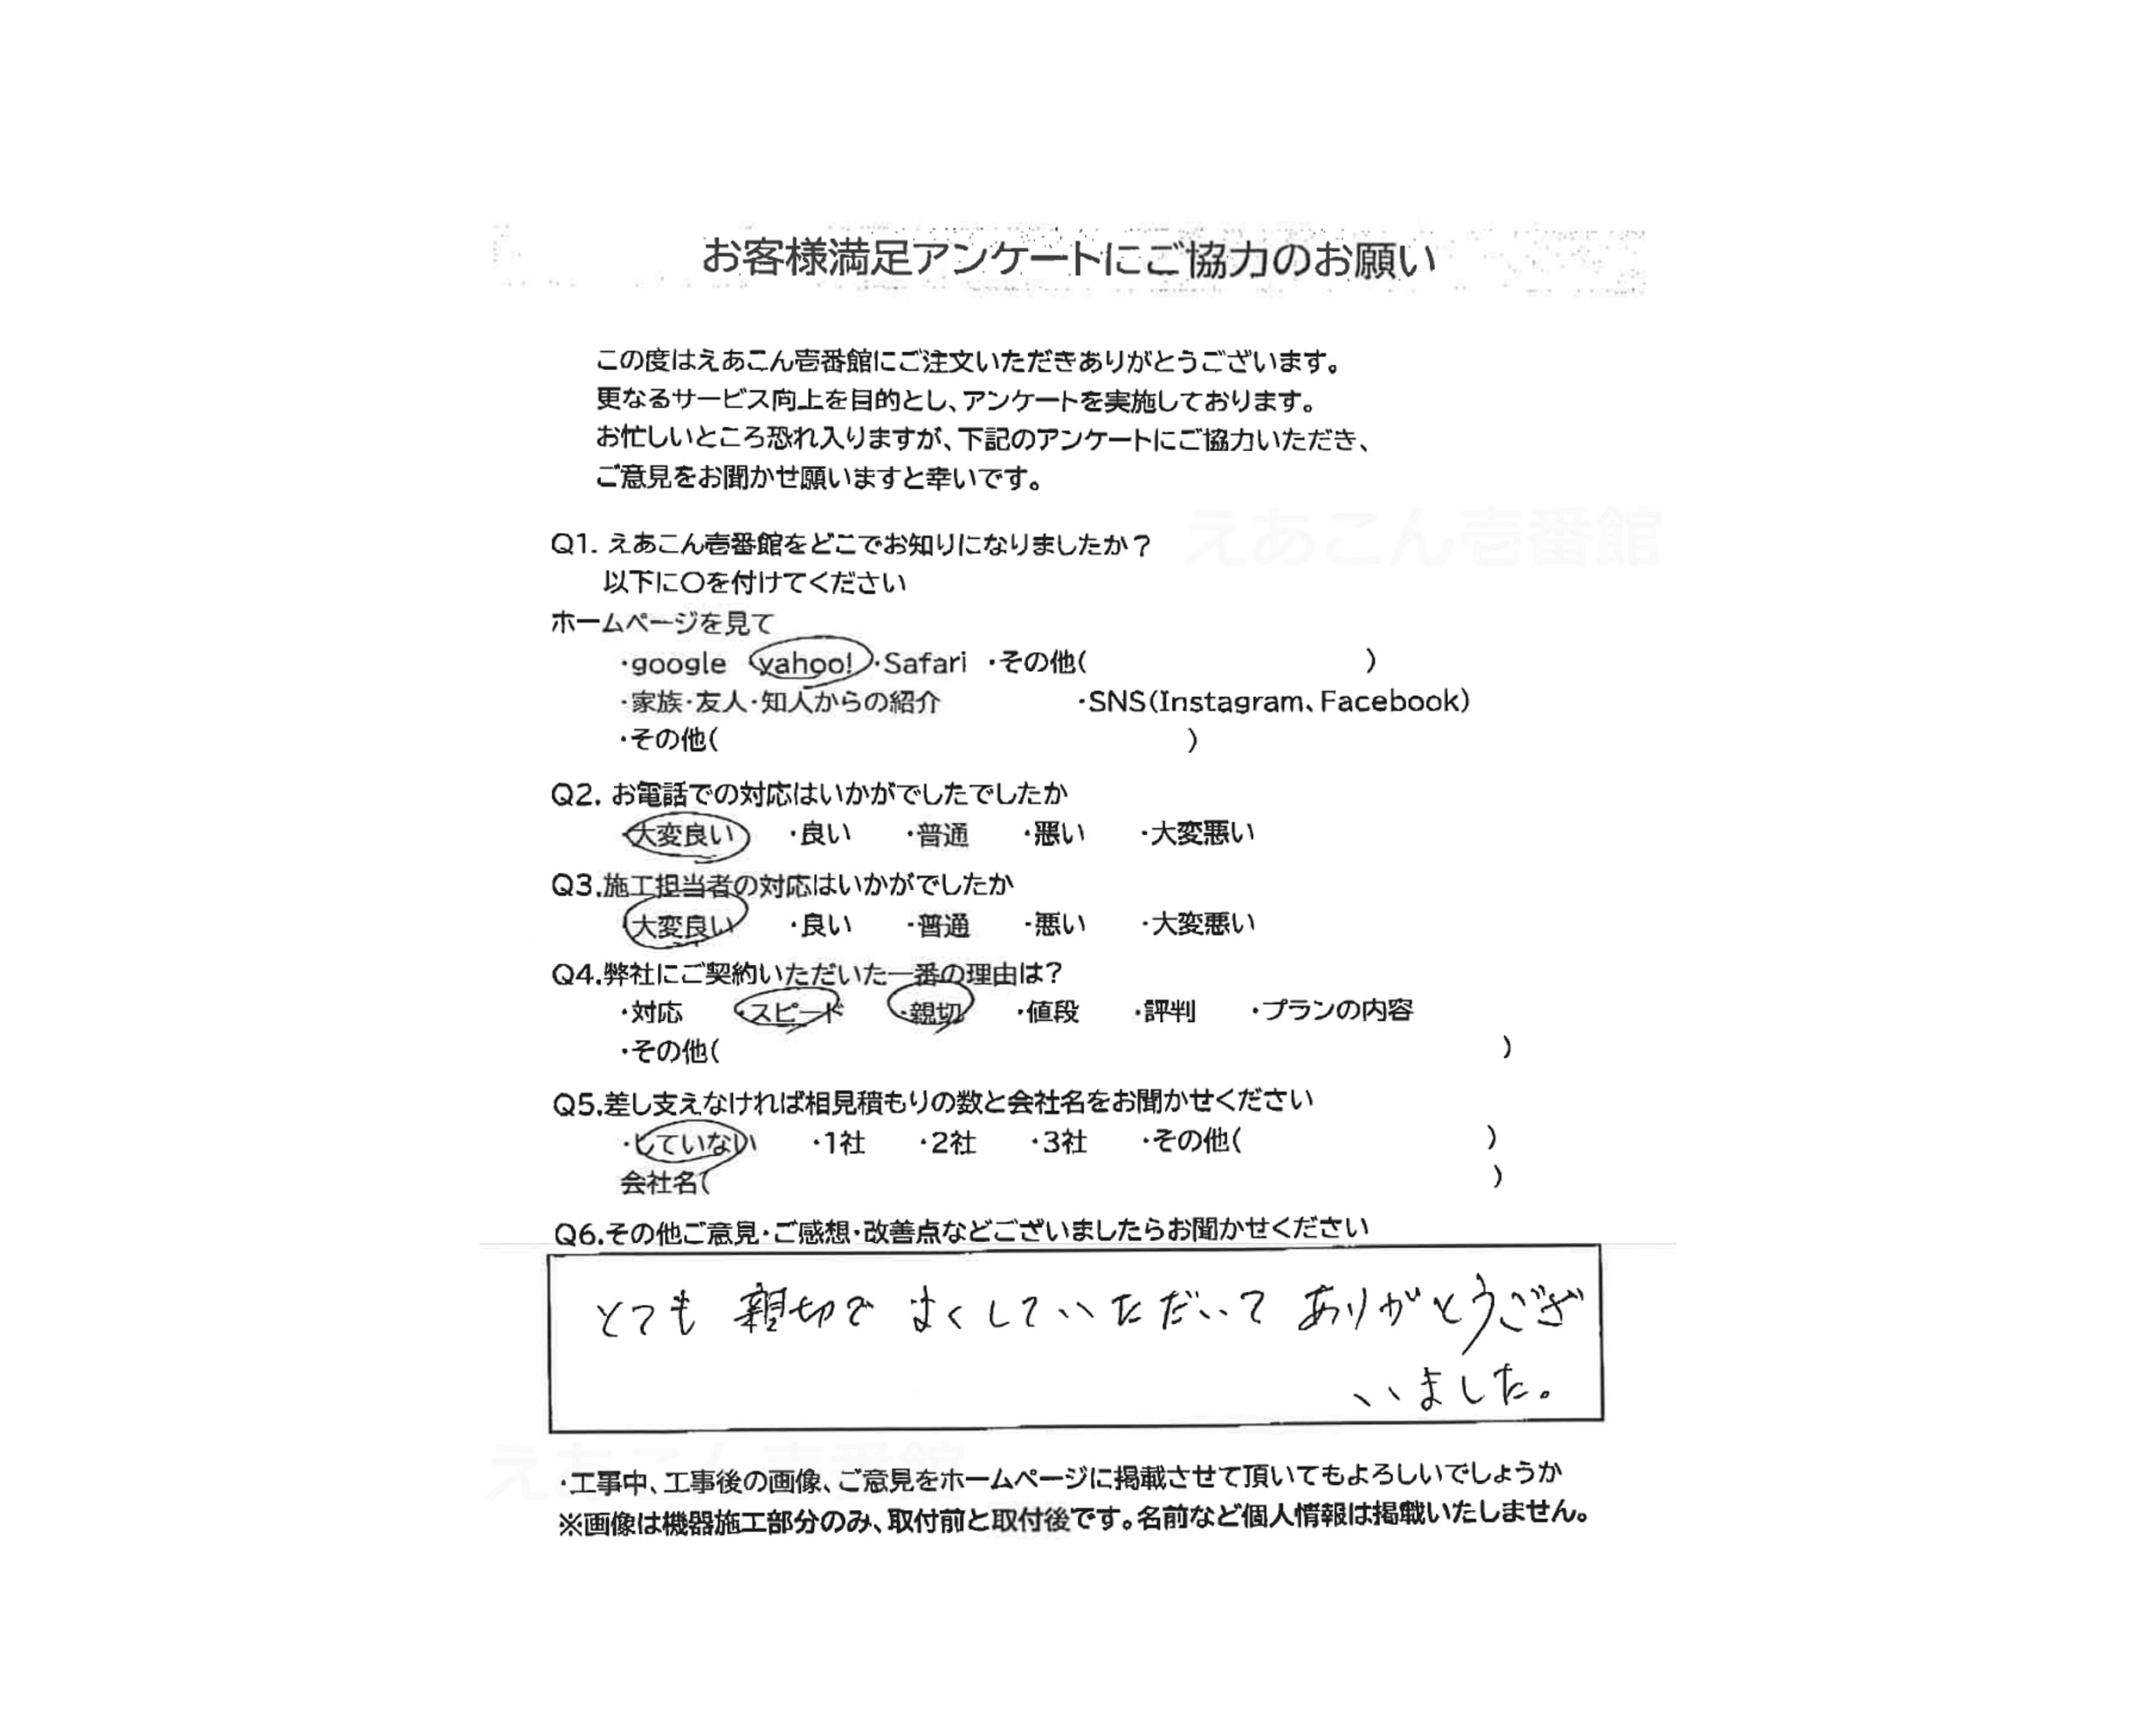 お客様満足アンケートにご協力のお願い
この度はえあこん壱番館にご注文いただきありがとうございます。
更なるサービス向上を目的とし、アンケートを実施しております。
お忙しいところ恐れ入りますが、下記のアンケートにご協力いただき、
ご意見をお聞かせ願いますと幸いです。
えあこん壱番館
Q1. えあこん壱番館をどこでお知りになりましたか？
以下に〇を付けてください
ホームページを見て
・google yahoo!・Safari ・その他( )
・家族・友人・知人からの紹介 ・SNS(Instagram、Facebook)
・その他( )
Q2. お電話での対応はいかがでしたでしたか
・大変良い ・良い ・普通 ・悪い ・大変悪い
Q3.施工担当者の対応はいかがでしたか
・大変良い ・良い ・普通 ・悪い ・大変悪い
Q4.弊社にご契約いただいた一番の理由は？
・対応 ・スピード ・親切 ・値段 ・評判 ・プランの内容
・その他( )
Q5.差し支えなければ相見積もりの数と会社名をお聞かせください
・していない ・1社 ・2社 ・3社 ・その他( )
会社名( )
Q6.その他ご意見・ご感想・改善点などございましたらお聞かせください
とても 親切で よくしていただいて ありがとうござ
いました。
えあこん壱番館
・工事中、工事後の画像、ご意見をホームページに掲載させて頂いてもよろしいでしょうか
※画像は機器施工部分のみ、取付前と取付後です。名前など個人情報は掲載いたしません。